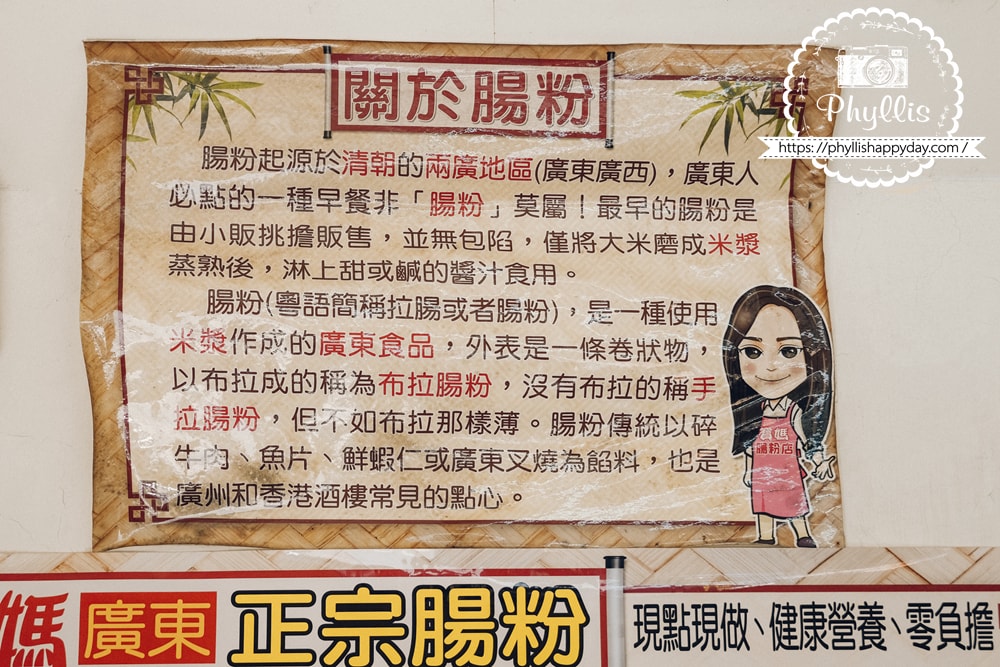 關於腸粉
腸粉起源於清朝的兩廣地區(廣東廣西)，廣東人
必點的一種早餐非「腸粉」莫屬！最早的腸粉是
由小販挑擔販售，並無包陷，僅將大米磨成米漿
蒸熟後，淋上甜或鹹的醬汁食用。
腸粉(粵語簡稱拉腸或者腸粉)，是一種使用
米漿作成的廣東食品，外表是一條卷狀物，
以布拉成的稱為布拉腸粉，沒有布拉的稱手
拉腸粉，但不如布拉那樣薄。腸粉傳統以碎
牛肉、魚片、鮮蝦仁或廣東叉燒為餡料，也是
廣州和香港酒樓常見的點心。
Phyllis
https://phyllishappyday.com/
媽
腸粉店
媽 廣東 正宗腸粉
現點現做、健康營養、零負擔